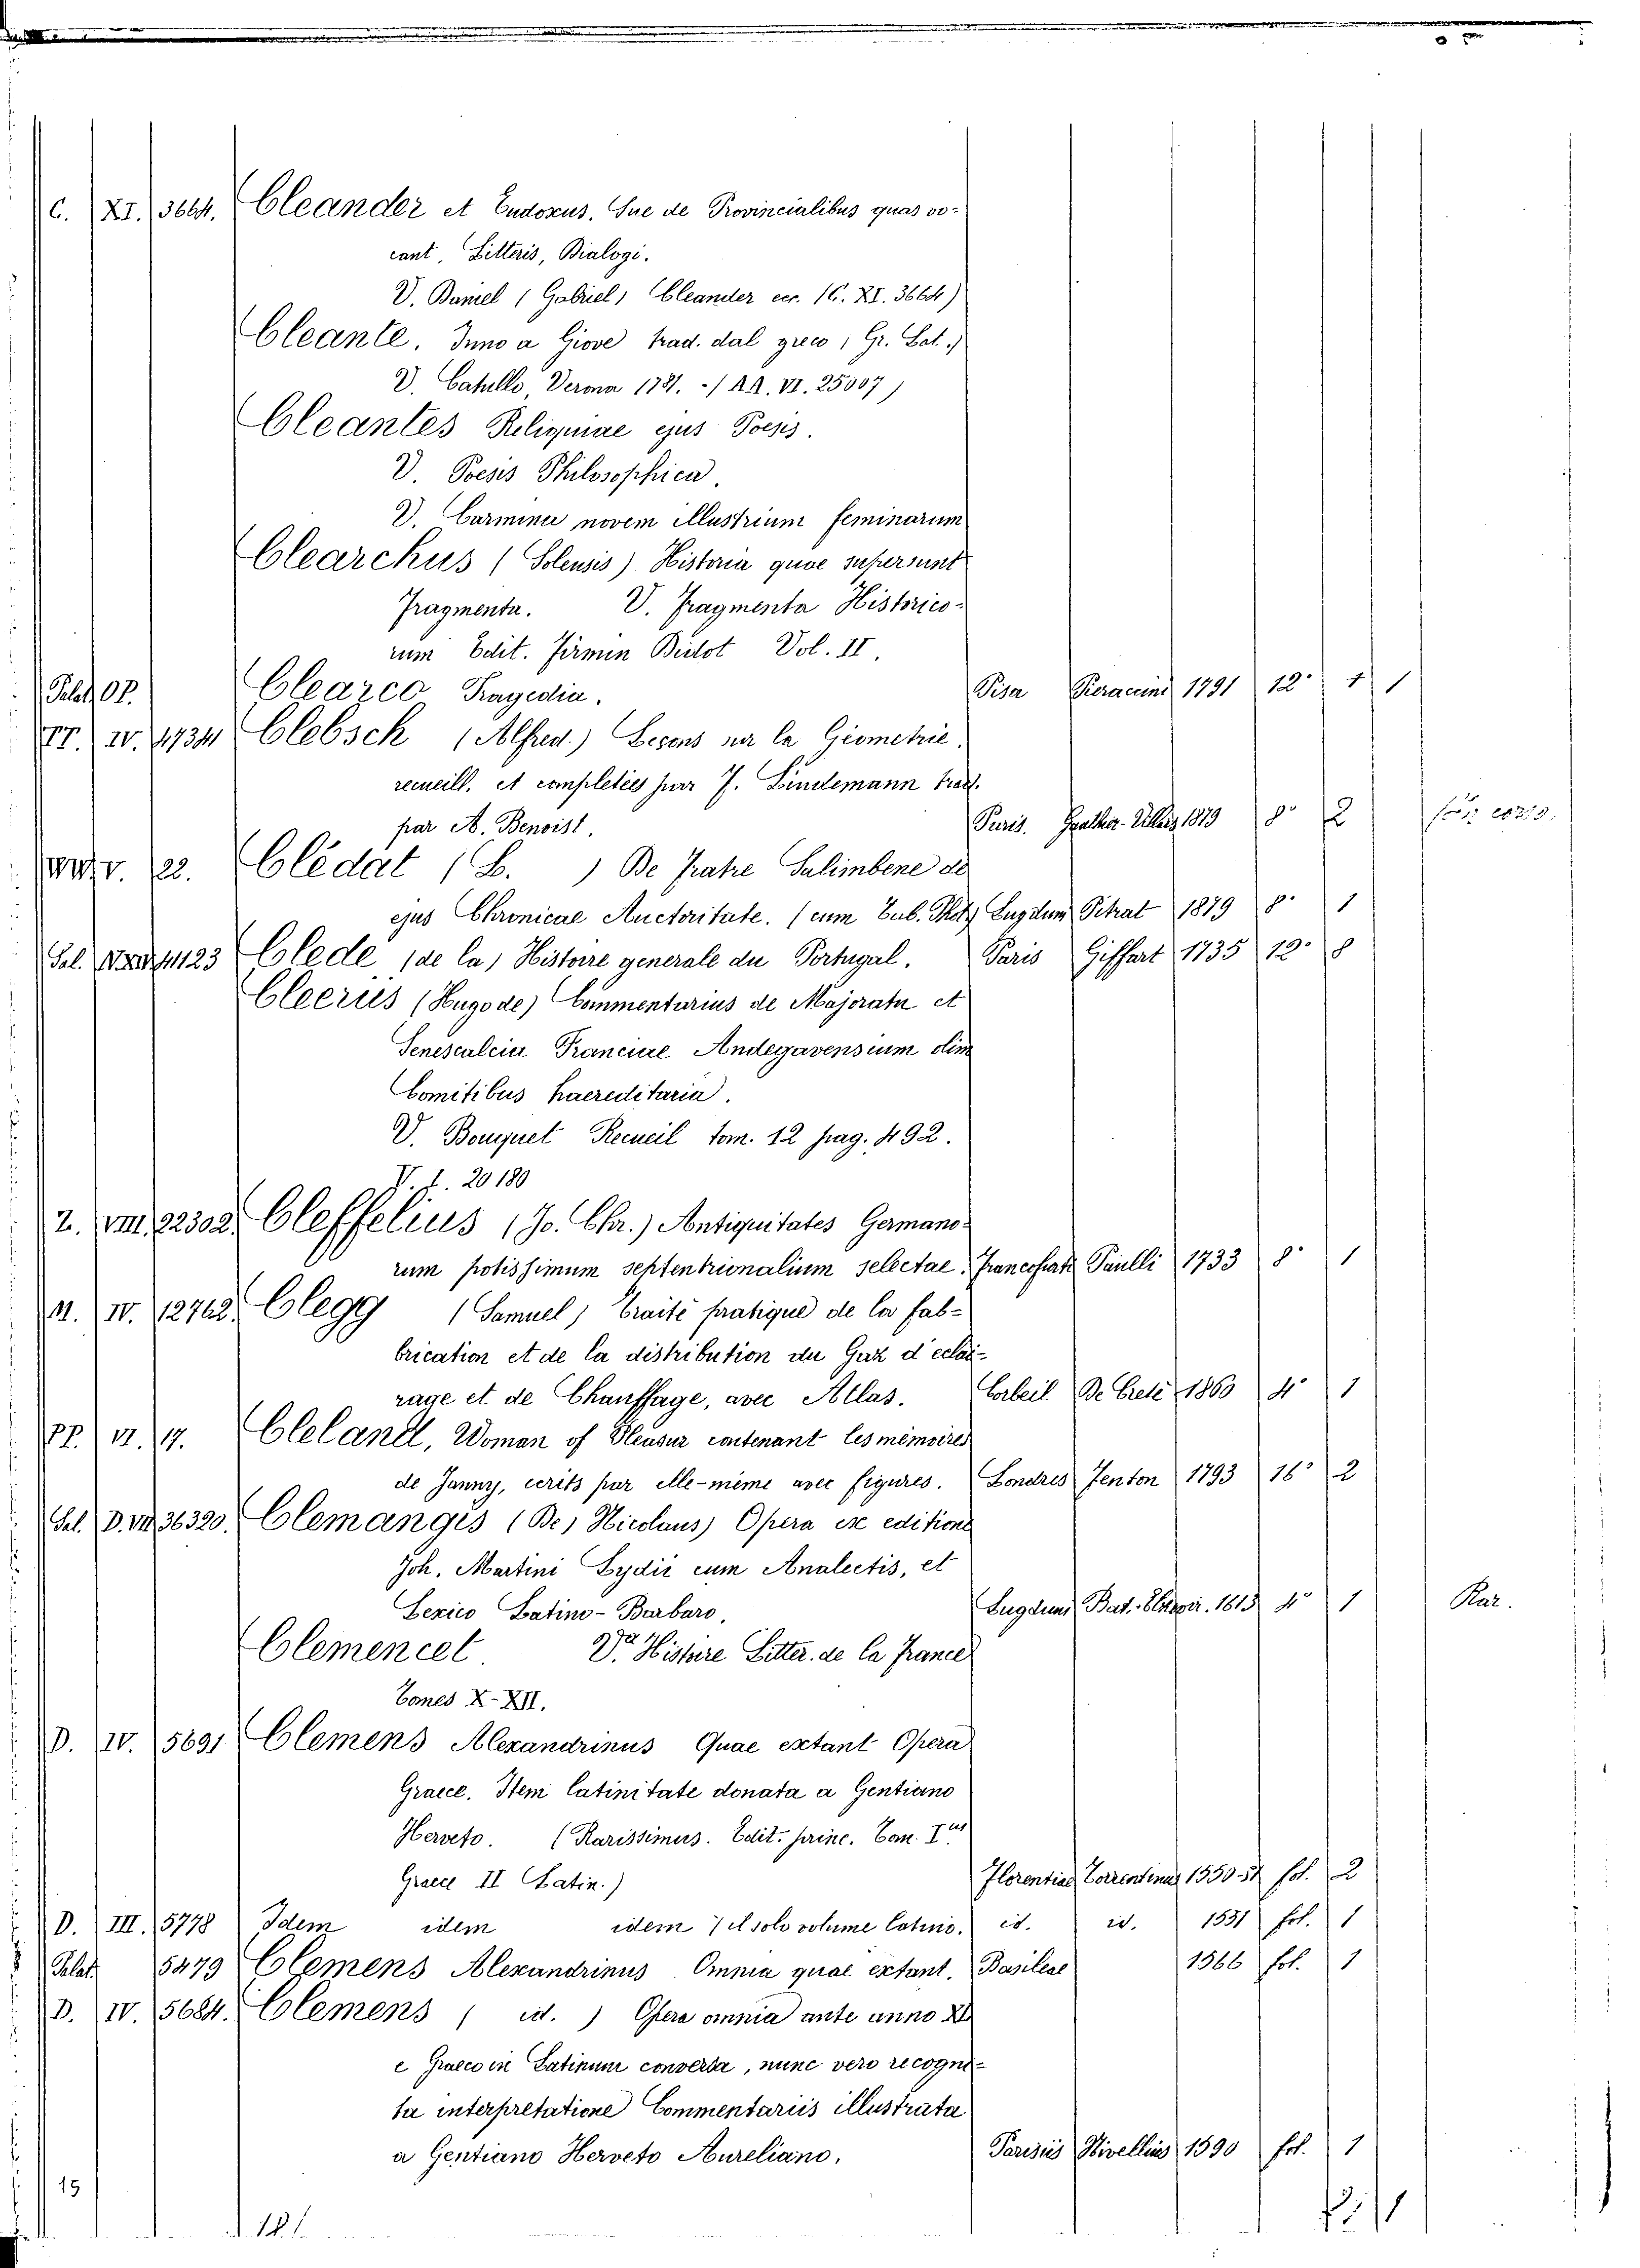 C. XI. 3664. Cleander et Eudoxus. Sue de Provincialibus quas vo-
cant, Litteris, Dialogi.
V. Daniel (Gabriel) Cleander ecc. (C. XI. 3664)
Cleante. Inno a Giove trad. dal greco (Gr. Lat.)
V. Catullo, Verona 1781. - (AA. VI. 25007)
Cleantes Reliquiae ejus Poesis.
V. Poesis Philosophica.
V. Carmina novem illustrium feminarum
Clearchus (Solensis) Historia quae supersunt
Fragmenta. V. Fragmenta Historico-
rum Edit. Firmin Didot Vol. II.
Palat. OP. Clearco Tragedia. Pisa Pieraccini 1791 12° 1 1
TT. IV. 4734 Clebsch (Alfred.) Leçons sur la Géometrie.
recueill. et completées par F. Lindemann trad.
par A. Benoist. Paris. Gauthier-Villars 1879 8° 2
V. 22. Clédat (L. ) De Fratre Salimbene de
ejus Chronicae Auctoritate. (cum Lugduni Pitrat 1879 8° 1
Sal. 41123 Clede (de la) Histoire generale du Portugal. Paris Giffart 1735 12° 8
Cleerius (Hugo de) Commentarius de Majoratu et
Senescalcia Franciae Andegavensium olim
Comitibus haereditaria.
V. Bouquet Recueil tom. 12 pag. 492.
V. I. 20180
Z. VIII. 22302. Cleffelius (Jo. Chr.) Antiquitates Germano-
rum potissimum septentrionalium selectae. Francofurti Paulli 1733 8° 1
M. IV. 12762. Clegg (Samuel) Traité pratique de la fab-
brication et de la distribution du Gaz d'eclai-
rage et de Chauffage, avec Atlas. Corbeil De Creté 1860 4° 1
PP. VI. 17. Cleland, Woman of Pleasur contenant les mémoires
de Fanny, ecrits par elle-même avec figures. Londres Fenton 1793 16° 2
Sal. D. VII. 36320. Clemangis (De) Nicolaus) Opera ex editione
Joh. Martini Lydii cum Analectis, et
Lexico Latino-Barbaro. Lugduni Bat. Elzevir. 1613 4° 1 Rar.
Clemencet. V. Histoire Litter. de la France
Tomes X-XII.
D. IV. 5691 Clemens Alexandrinus Quae extant Opera
Graece. Item latinitate donata a Gentiano
Herveto. (Rarissimus. Edit. princ. Tom. I us
Graece II Latin.) Florentiae Torrentinus 1550-51 fol. 2
D. III. 5778 Idem idem idem (il solo volume latino. id. id. 1551 fol. 1
Palat. 5479 Clemens Alexandrinus Omnia quae extant. Basileae 1566 fol. 1
D. IV. 5684. Clemens ( id. ) Opera omnia ante anno XI
e Graeco in Latinum conversa, nunc vero recogni-
ta interpretatione Commentariis illustrata
a Gentiano Herveto Aureliano. Parisiis Nivellius 1590 fol. 1
15